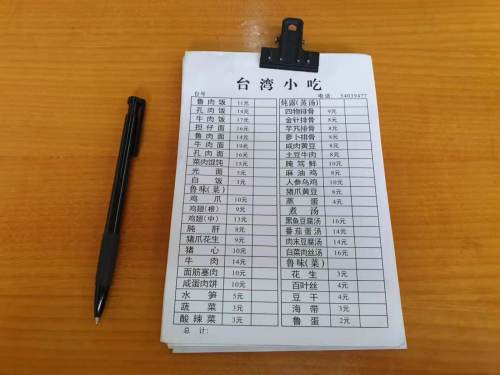 台湾小吃
台号 电话: 54039477
鲁肉饭 11元
孔肉饭 14元
牛肉饭 17元
担仔面 16元
鲁肉面 14元
牛肉面 19元
孔肉面 16元
菜肉馄饨 15元
光面 5元
白饭 1元
鲁味(菜)
鸡爪 10元
鸡翅(根) 9元
鸡翅(中) 13元
肫肝 8元
猪爪花生 9元
猪心 10元
牛肉 14元
面筋塞肉 10元
咸蛋肉饼 10元
水笋 5元
蔬菜 3元
酸辣菜 3元
总计:
炖露(蒸汤)
四物排骨 9元
金针排骨 8元
芋艿排骨 8元
萝卜排骨 8元
咸肉黄豆 8元
土豆牛肉 8元
腌笃鲜 10元
麻油鸡 8元
人参乌鸡 10元
猪爪黄豆 8元
蒸蛋 4元
煮汤
黑鱼豆腐汤 16元
番茄蛋汤 14元
肉末豆腐汤 14元
白菜肉丝汤 16元
鲁味(菜)
花生 3元
百叶丝 4元
豆干 4元
海带 3元
鲁蛋 2元